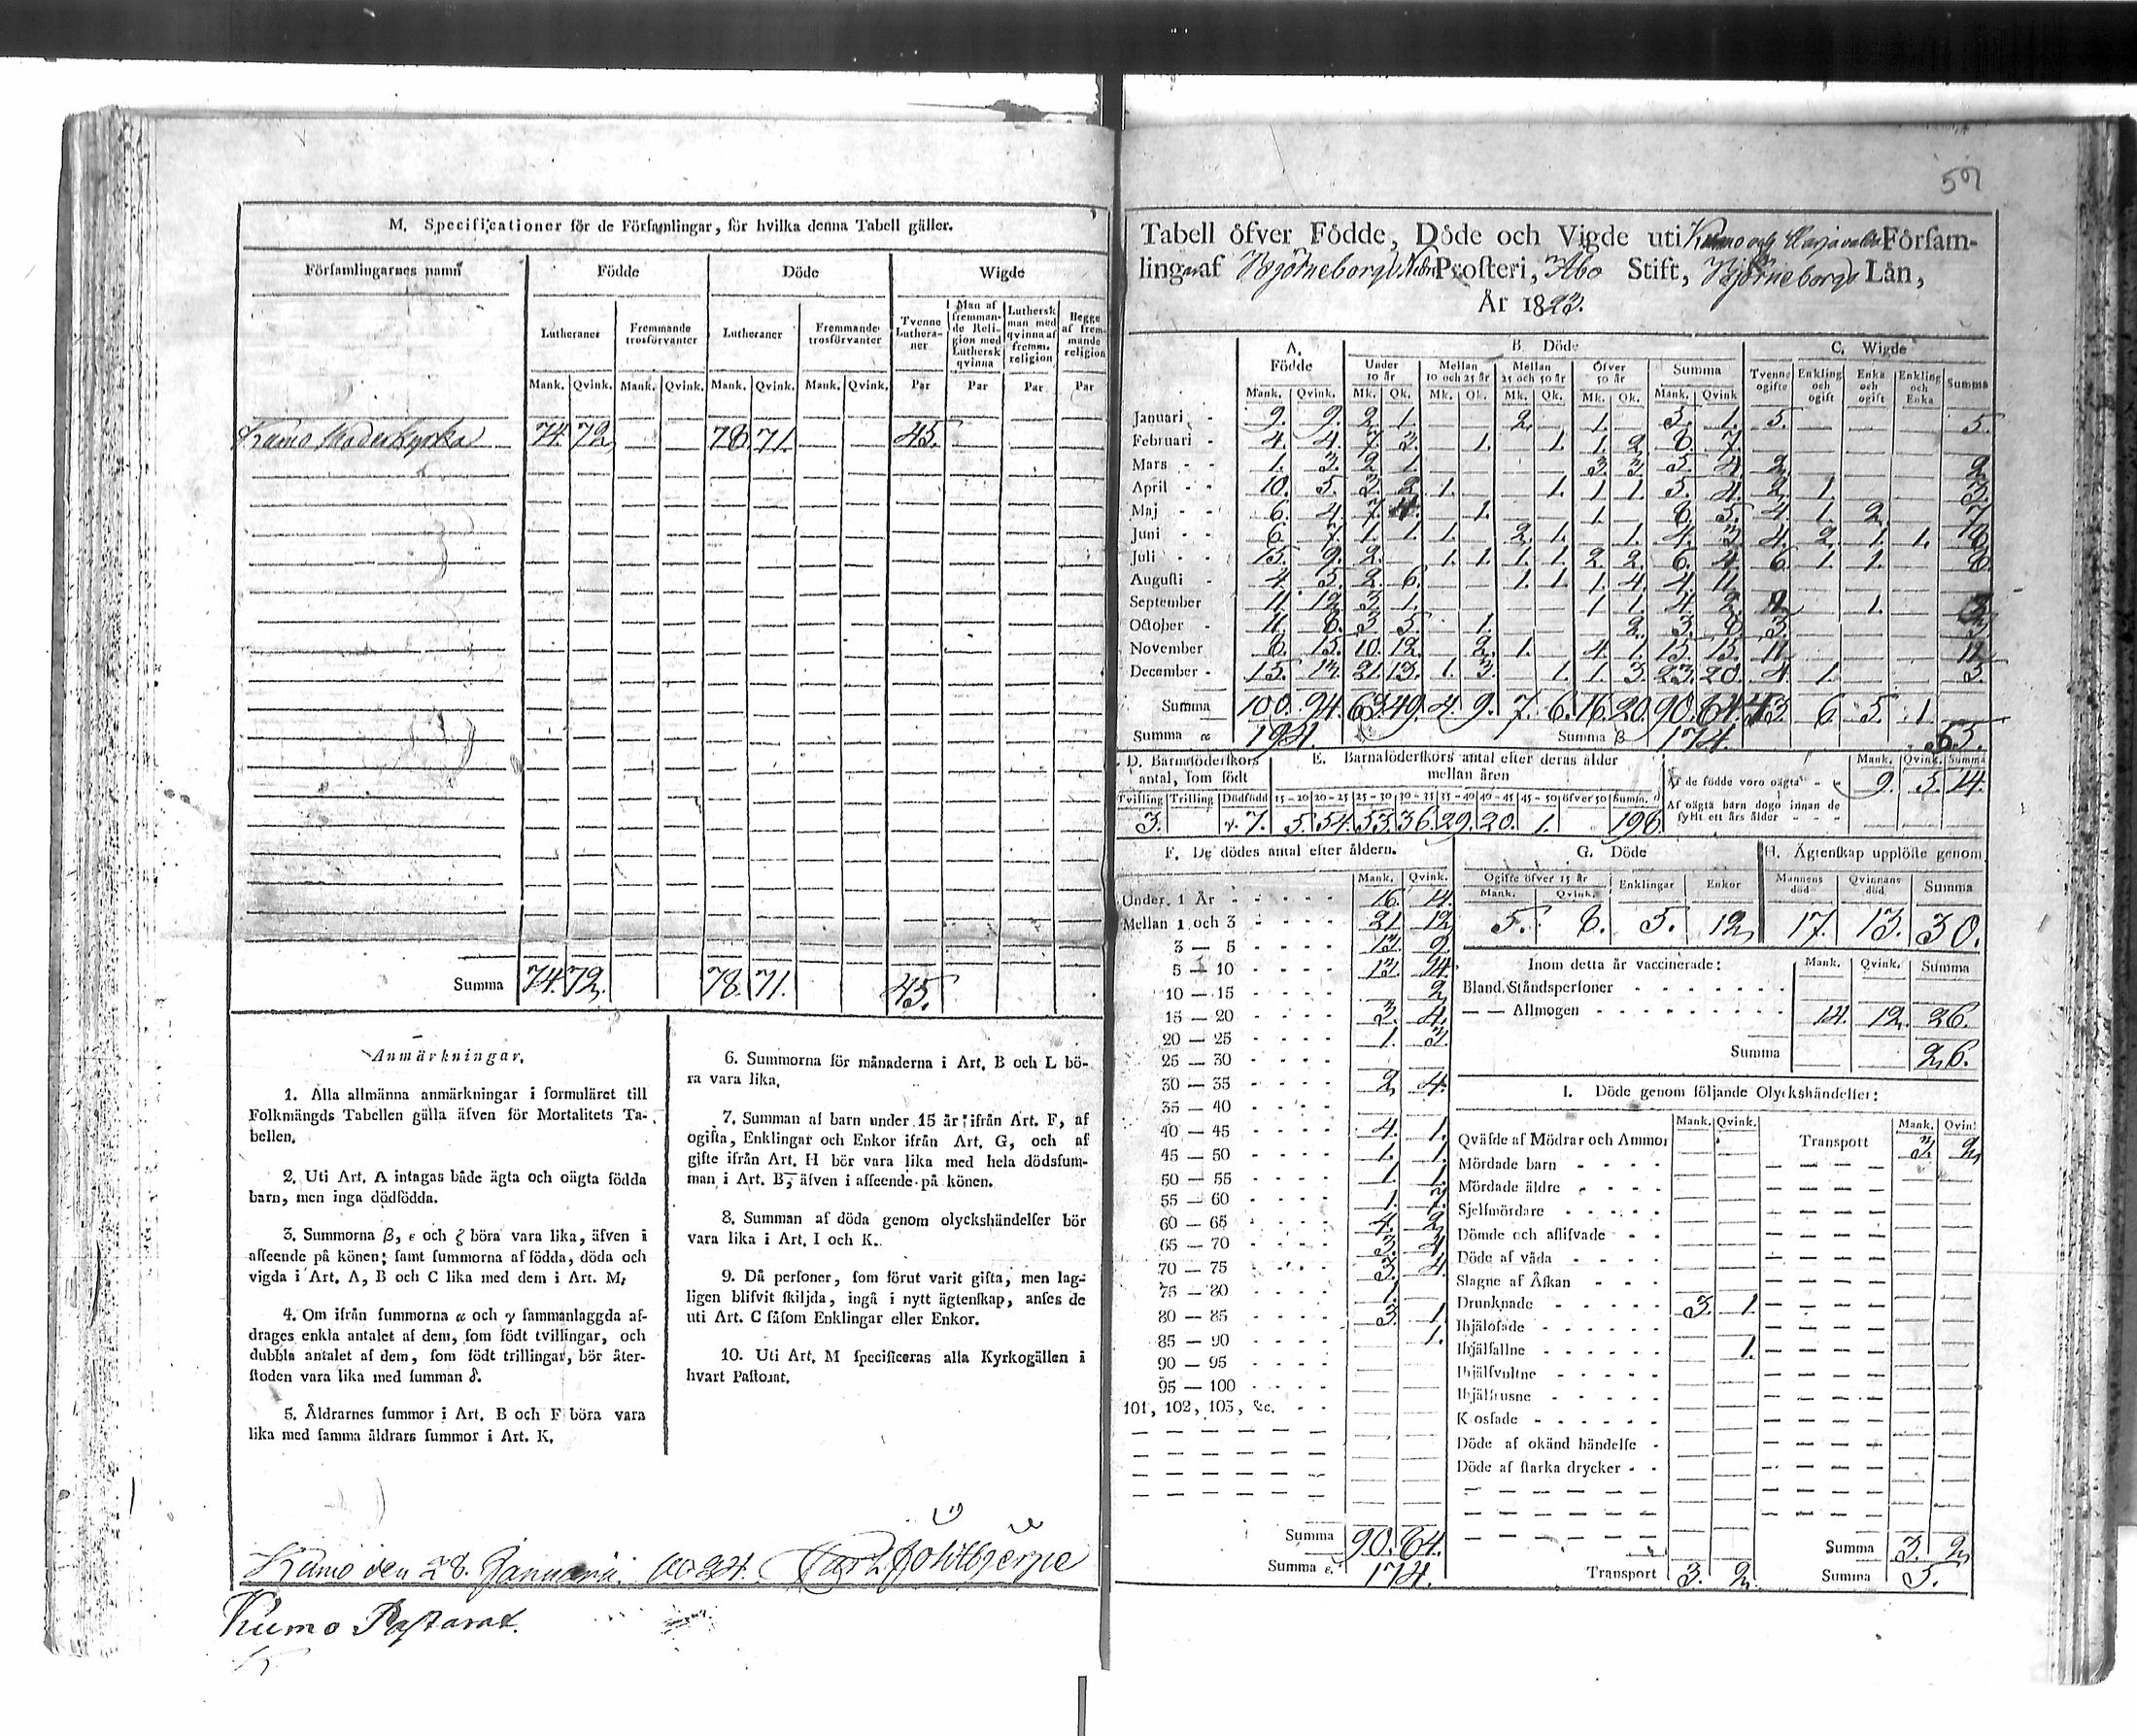 M. Specificationer för de Församlingar, för hvilka denna Tabell gäller.
Församlingarnes namn Födde Döde Wigde
Lutheraner Fremmande trosförvanter Lutheraner Fremmande trosförvanter Tvenne Lutheraner Man af fremmande Religion med Luthersk qvinna Luthersk man med qvinna af fremm. religion Begge af fremmande religion
Mank. Qvink. Mank. Qvink. Mank. Qvink. Mank. Qvink. Par Par Par Par
Kumo Moderkyrka 74. 72 78. 71. 45.
Summa 74. 72. 78. 71. 45.
Anmärkningar.
1. Alla allmänna anmärkningar i formuläret till
Folkmängds Tabellen gälla äfven för Mortalitets Ta-
bellen.
2. Uti Art. A intagas både ägta och oägta födda
barn, men inga dödfödda.
3. Summorna β, ε och ζ böra vara lika, äfven i
afseende på könen; samt summorna af födda, döda och
vigda i Art. A, B och C lika med dem i Art. M.
4. Om ifrån summorna α och γ sammanlaggda af-
drages enkla antalet af dem, som födt tvillingar, och
dubbla antalet af dem, som födt trillingar, bör åter-
stoden vara lika med summan δ.
5. Åldrarnes summor i Art. B och F böra vara
lika med samma åldrars summor i Art. K.
6. Summorna för månaderna i Art. B och L bö-
ra vara lika.
7. Summan af barn under 15 år ifrån Art. F, af
ogifta, Enklingar och Enkor ifrån Art. G, och af
gifte ifrån Art. H bör vara lika med hela dödsfum-
man i Art. B, äfven i afseende på könen.
8. Summan af döda genom olyckshändelser bör
vara lika i Art. I och K.
9. Då personer, som förut varit gifta, men lag-
ligen blifvit skiljda, ingå i nytt ägtenskap, anses de
uti Art. C såsom Enklingar eller Enkor.
10. Uti Art. M specificeras alla Kyrkogällen i
hvart Pastorat.
Kumo den 28. Januarii 1824.
Kumo Pastorat.
Tabell öfver Födde, Döde och Vigde uti Kumo och Harjavalta Försam-
lingar af Björneborgs Nedre Prosteri, Åbo Stift, Björneborgs Län,
År 1823.
A. Födde B. Döde C. Wigde
Under 10 år Mellan 10 och 25 år Mellan 25 och 50 år Öfver 50 år Summa Tvenne ogifte Enkling och ogift Enka och ogift Enkling och Enka Summa
Mank. Qvink. Mk. Qk. Mk. Qk. Mk. Qk. Mk. Qk. Mank. Qvink
Januari 9. 9. 2. 1. 2. 1. 5. 1. 5. 5.
Februari 4. 4. 7. 3. 1. 1. 1. 2. 8. 7.
Mars 1. 3. 2. 1. 3. 3. 5. 4. 2. 2.
April 10. 5. 3. 2. 1. 1. 1. 1. 5. 4. 2. 1. 3.
Maj 6. 4. 7. 4. 1. 1. 8. 5. 4. 1. 2. 7.
Juni 6. 7. 1. 1. 1. 2. 1. 1. 4. 3. 4. 2. 1. 1. 8.
Juli 15. 9. 2. 1. 1. 1. 1. 2. 2. 6. 4. 6. 1. 1. 8.
Augusti 4. 5. 2. 6. 1. 1. 1. 4. 4. 11.
September 11. 12. 3. 1. 1. 1. 4. 2. 1.
October 11. 8. 3. 5. 1. 2. 3. 8. 3. 3.
November 8. 15. 10. 12. 2. 1. 4. 1. 15. 15. 11.
December 15. 13. 21. 13. 1. 3. 1. 1. 3. 23. 20. 4. 1. 5.
Summa 100. 94. 63. 49. 4. 9. 7. 6. 16. 20. 90. 84. 43. 6. 5. 1.
Summa α 194. Summa β 174. 55.
D. Barnaföderskors antal, som födt E. Barnaföderskors antal efter deras ålder mellan åren Mank. Qvink. Summa
Af de födde voro oägta 9. 5. 14.
Tvilling Trilling Dödfödd 15-20 20-25 25-30 30-35 35-40 40-45 45-50 öfver 50 Summ. δ
Af oägta barn dogo innan de fyllt ett års ålder
3. γ. 7. 5. 54. 53. 36. 29. 20. 1. 198.
F. De dödes antal efter åldern.
Mank. Qvink.
Under 1 År 16. 14.
Mellan 1 och 3 21. 12
3 — 5 13. 9.
5 — 10 13. 14.
10 — 15 2
15 — 20 3. 4.
20 — 25 1. 3.
25 — 30
30 — 35 2. 4.
35 — 40
40 — 45 4. 1.
45 — 50 1. 1.
50 — 55 1. 1.
55 — 60 1. 7.
60 — 65 4. 2.
65 — 70 3. 4.
70 — 75 3. 4.
75 — 80 1.
80 — 85 3. 1.
85 — 90 1.
90 — 95
95 — 100
101, 102, 103, &c.
Summa 90. 84.
Summa ε. 174.
G. Döde H. Ägtenskap upplöste genom
Ogifte öfver 15 år Enklingar Enkor Mannens död Qvinnans död. Summa
Mank. Qvink.
5. 8. 5. 12. 17. 13. 30.
Inom detta år vaccinerade: Mank. Qvink. Summa
Bland Ståndspersoner
— — Allmogen 14. 12. 26.
Summa 26.
I. Döde genom följande Olyckshändelser:
Mank. Qvink. Mank. Qvin
Qväfde af Mödrar och Ammor Transport 3. 2.
Mördade barn
Mördade äldre
Sjelfmördare
Dömde och aflifvade
Döde af våda
Slagne af Åskan
Drunknade 3. 1.
Ihjälfallne 1.
Döde af okänd händelse
Döde af starka drycker
Summa 3. 2.
Transport 3. 2. Summa 5.